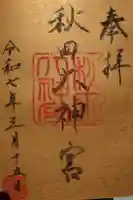 奉拝
秋田大神宮
令和七年三月十五日